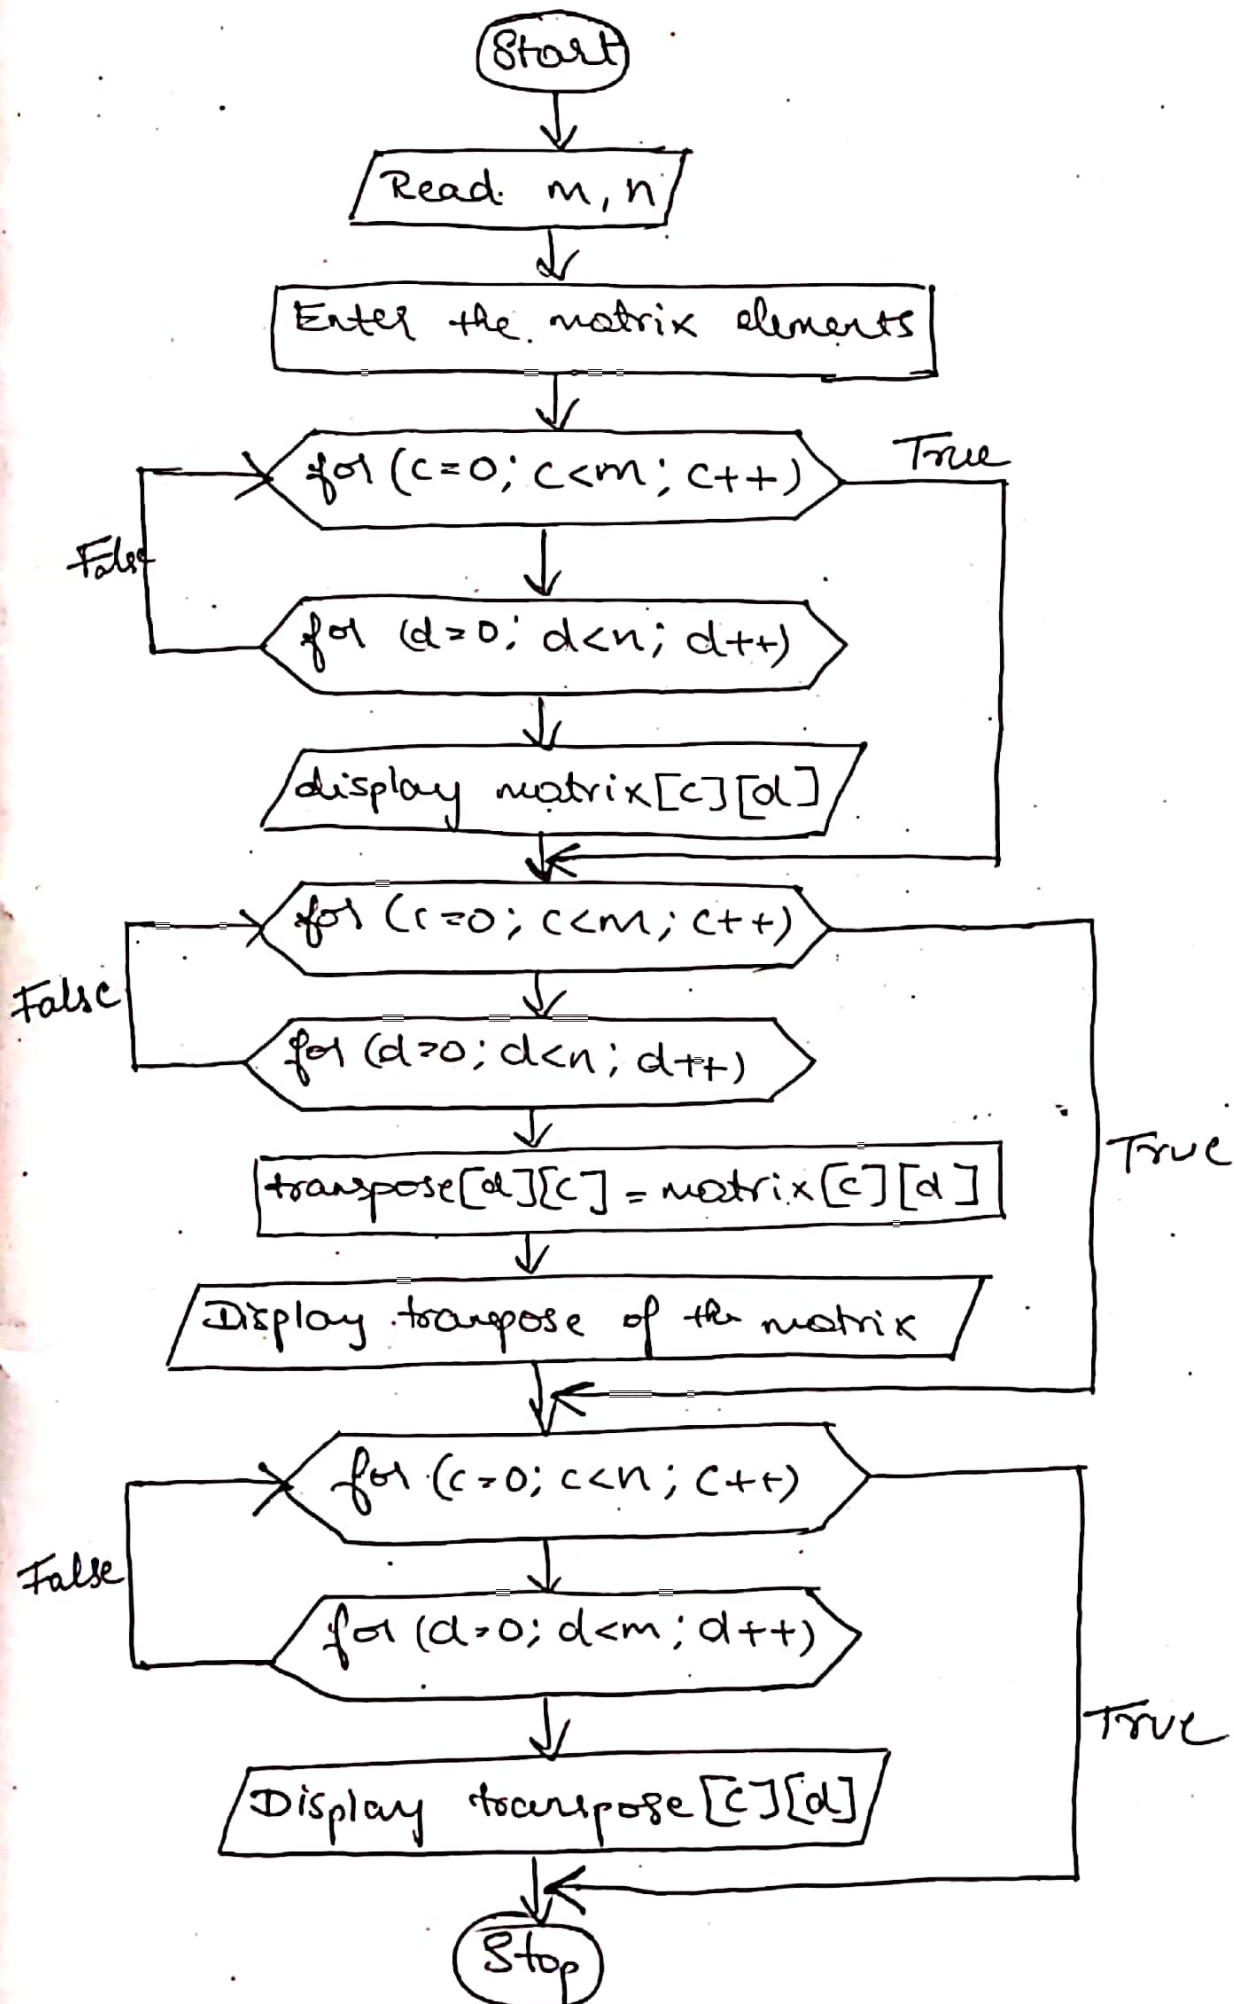 Start
Read m, n
Enter the matrix elements
for (c=0; c<m; c++)
True
False
for (d=0; d<n; d++)
display matrix[c][d]
for (c=0; c<m; c++)
False
for (d=0; d<n; d++)
True
transpose[d][c] = matrix[c][d]
Display tranpose of the matrix
for (c=0; c<n; c++)
False
for (d=0; d<m; d++)
True
Display transpose[c][d]
Stop